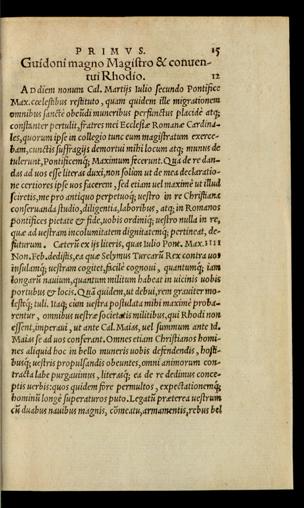 PRIMVS. 15
Guidoni magno Magistro & conuen-
tui Rhodio. 12
AD diem nonum Cal. Martijs Iulio secundo Pontifice
Max. cœlestibus restituto, quam quidem ille migrationem
omnibus sanctè obeũdi muneribus perfunctus placidè atq;
constanter pertulit, fratres mei Ecclesiæ Romanæ Cardina-
les, quorum ipse in collegio tunc eum magistratum exerce-
bam, cunctis suffragijs demortui mihi locum atq; munus de
tulerunt, Pontificemq; Maximum fecerunt. Qua de re dan-
das ad uos esse literas duxi, non solùm ut de mea declaratio-
ne certiores ipse uos facerem, sed etiam uel maximè ut illud
sciretis, me pro antiquo perpetuoq; uestro in re Christiana
conseruanda studio, diligentia, laboribus, atq; in Romanos
pontifices pietate & fide, uobis ordiniq; uestro nulla in re,
quæ ad uestram incolumitatem dignitatemq; pertineat, de-
futurum. Cæterũ ex ijs literis, quas Iulio Pont. Max. IIII
Non. Feb. dedistis, ea quæ Selymus Turcarũ Rex contra uos
insulamq; uestram cogitet, facilè cognoui, quantumq; iam
longarũ nauium, quantum militum habeat in uicinis uobis
portubus & locis. Quã quidem, ut debui, rem grauiter mo-
lesteq; tuli. Itaq; cùm uestra postulata mihi maximè proba-
rentur, omnibus uestræ societatis militibus, qui Rhodi non
essent, imperaui, ut ante Cal. Maias, uel summum ante Id.
Maias se ad uos conferant. Omnes etiam Christianos homi-
nes aliquid hoc in bello muneris uobis defendendis, hosti-
busq; uestris propulsandis obeuntes, omni animorum con-
tracta labe purgauimus, literasq; ea de re dedimus conce-
ptis uerbis: quos quidem fore permultos, expectationemq;
hominũ longè superaturos puto. Legatũ præterea uestrum
cũ duabus nauibus magnis, cõmeatu, armamentis, rebus bel